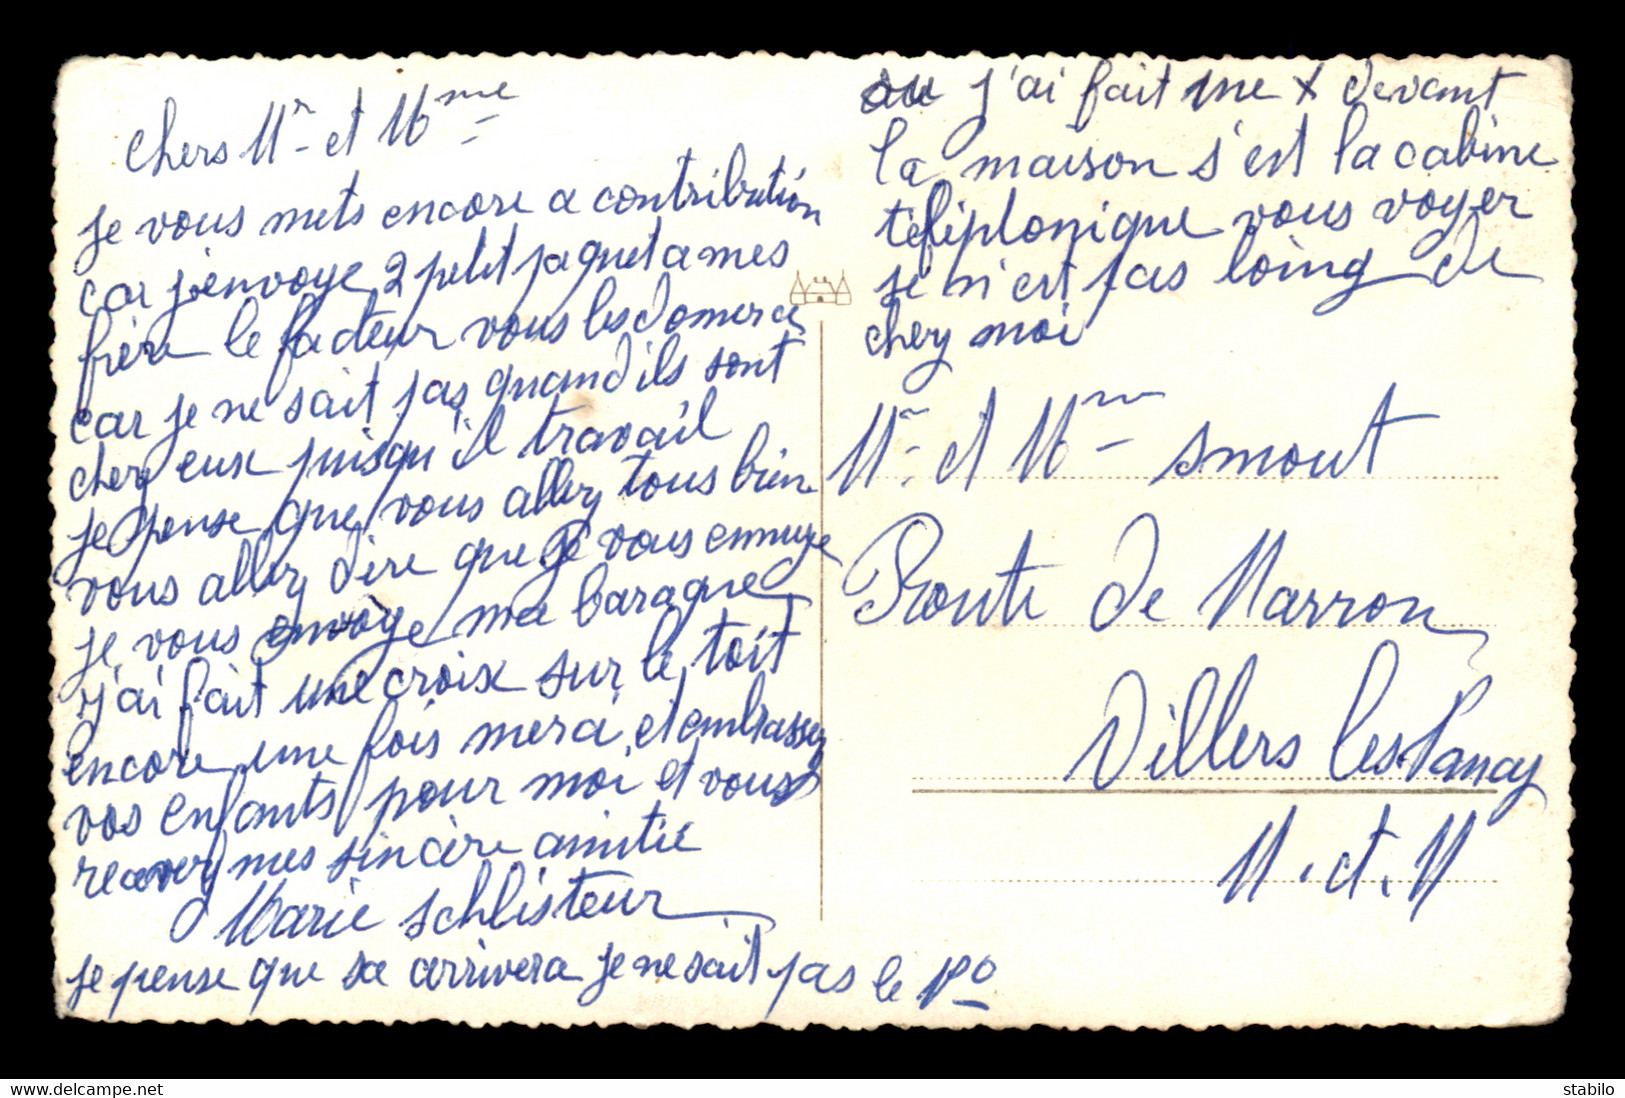 Chers Mr et Mme
je vous mets encore a contribution
car j'envoye 2 petit paquet a mes
frère le facteur vous les domera
car je ne sait pas quand ils sont
chez eux puisqu'il travail
je pense que vous allez tous bien
vous allez dire que je vous ennuye
je vous envoye ma baraque
j'ai fait une croix sur le toit
encore une fois merci et embrassez
vos enfants pour moi et vous
recevez mes sincère amitié
Marie Schlisteur
je pense que sa arrivera je ne sait pas le No
ou j'ai fait une x devant
la maison s'est la cabine
téléphonique vous voyer
je n'est pas loing de
chez moi
Mr et Mme Smout
Route de Marron
Villers les Nancy
M. et. M
Delcampe.net
stabilo